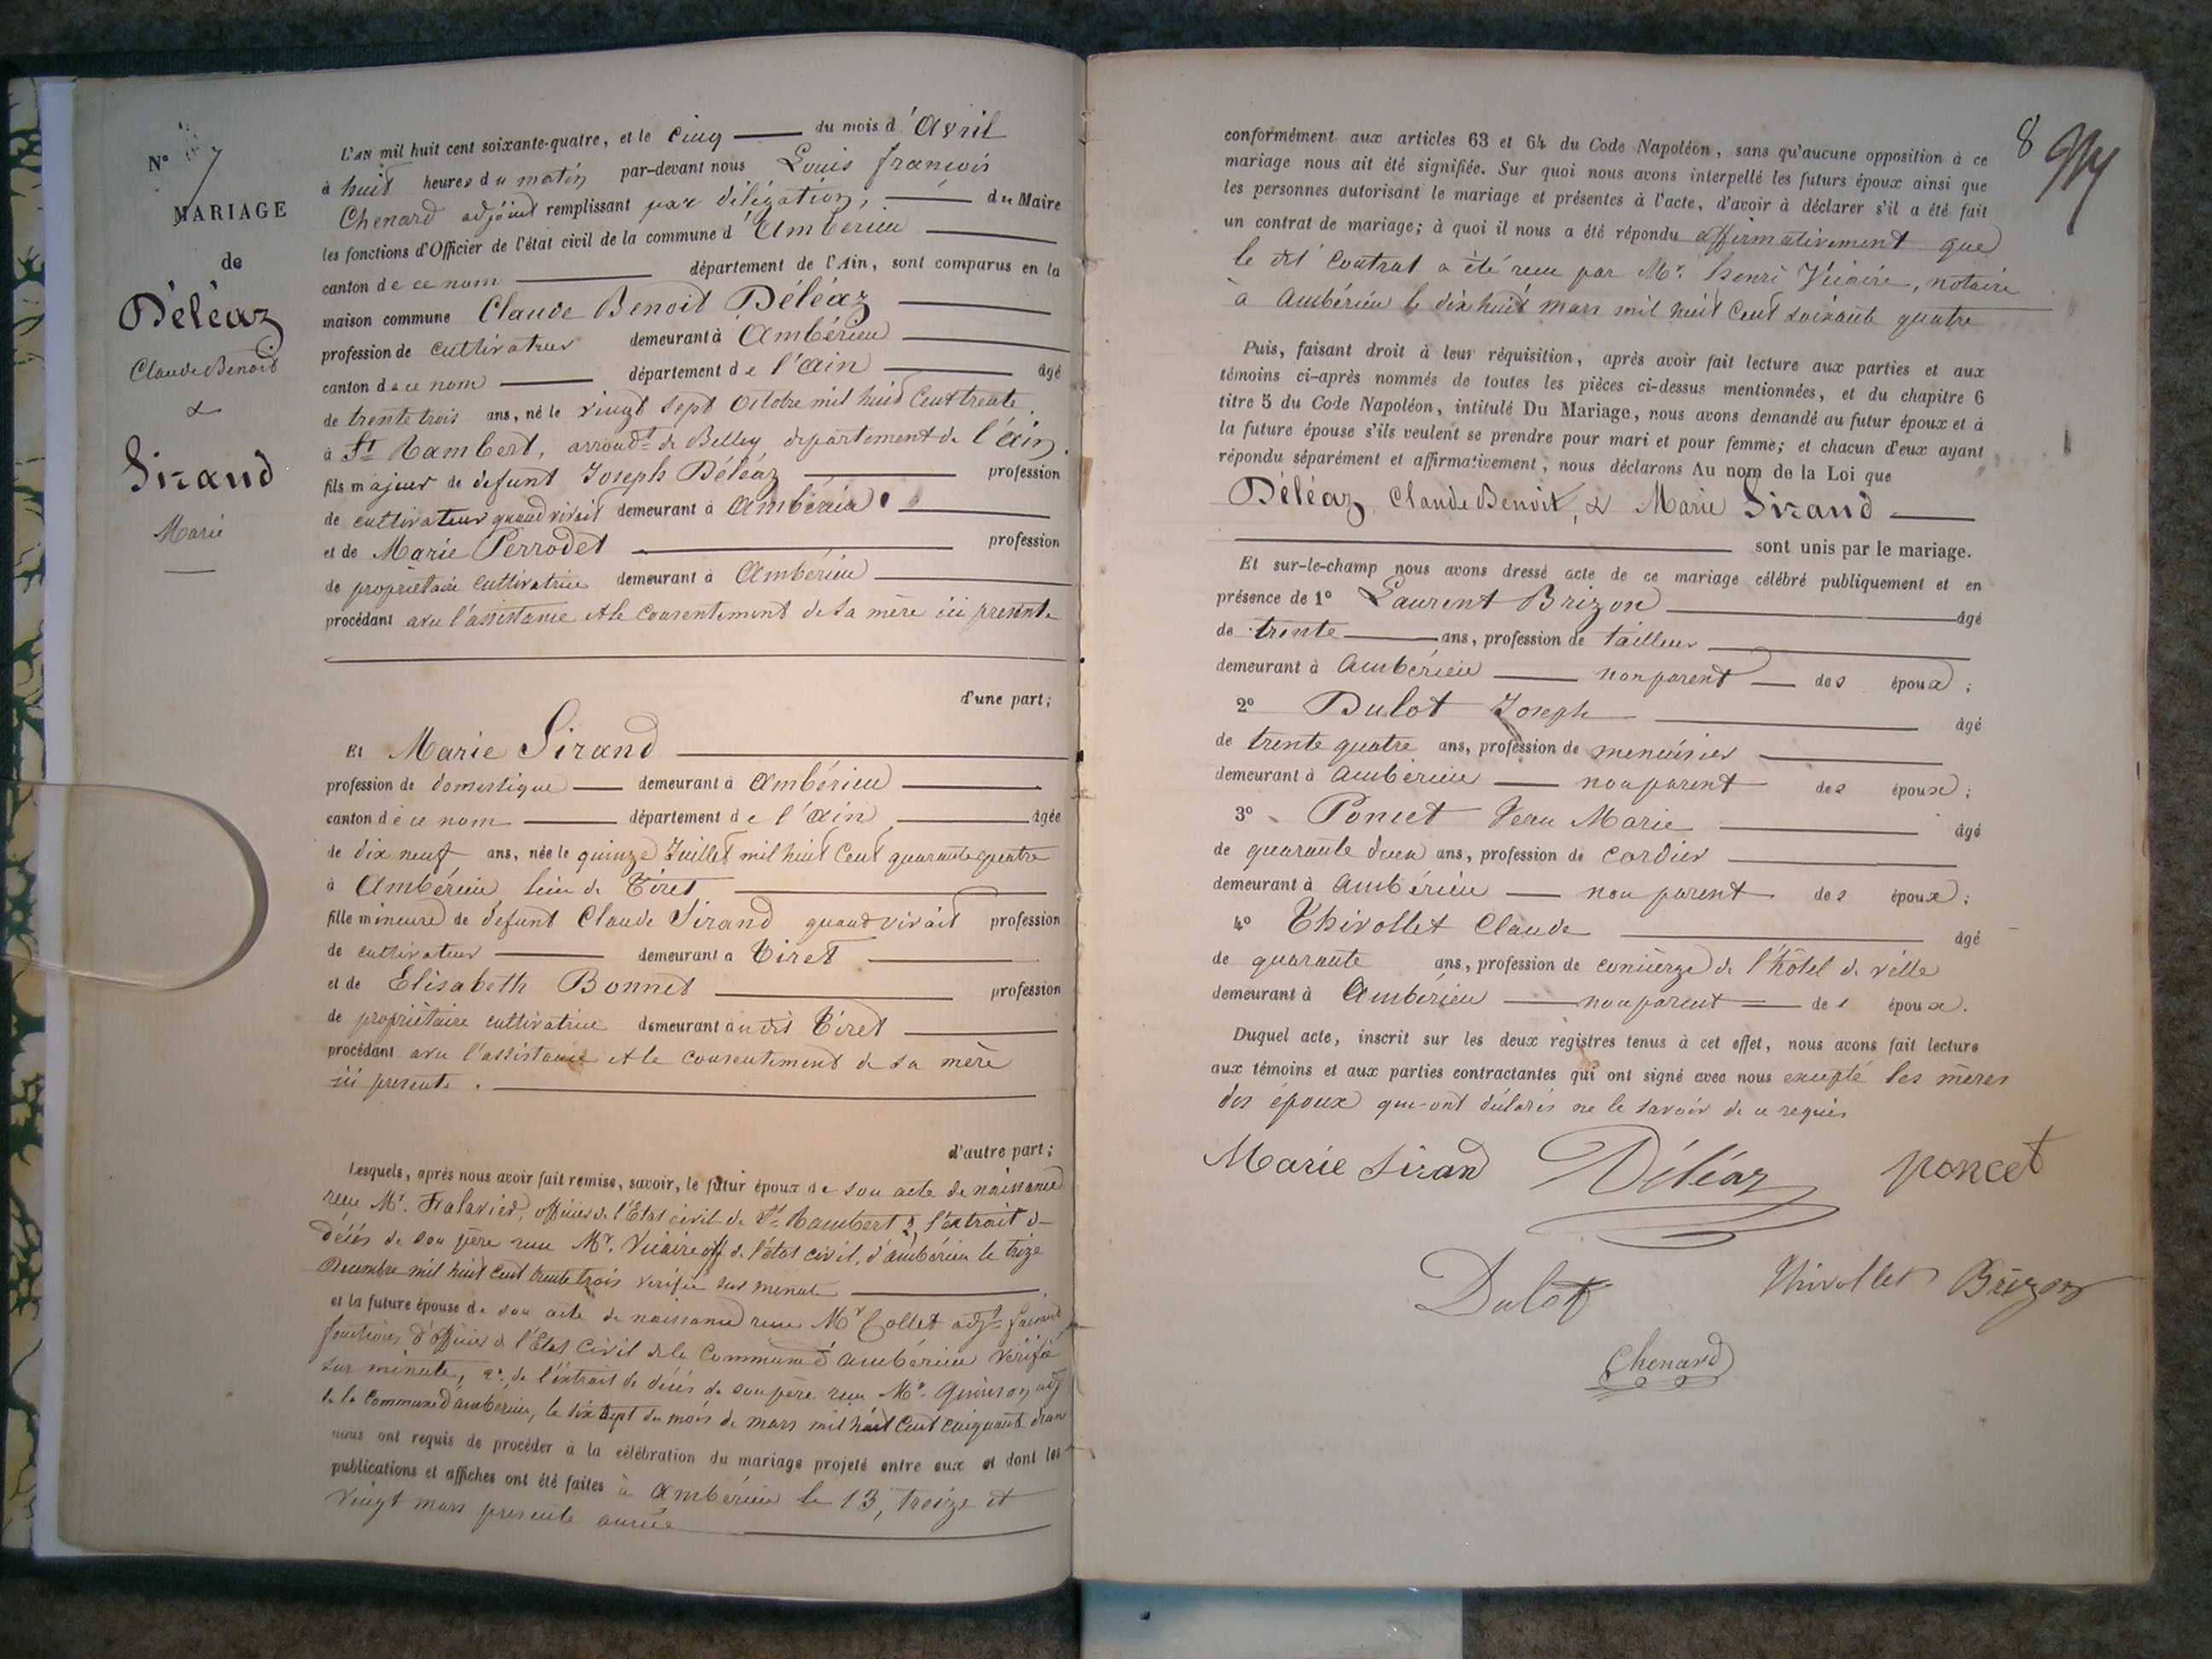 N° 7
MARIAGE
de
Déléaz
Claude Benoit
&
Sirand
Marie
L'AN mil huit cent soixante-quatre, et le cinq du mois d'Avril
à huit heures du matin par-devant nous Louis francois
Chenard adjoint remplissant par délégation, du Maire
les fonctions d'Officier de l'état civil de la commune d'Ambérieu
canton de ce nom département de l'Ain, sont comparus en la
maison commune Claude Benoit Déléaz
profession de cultivateur demeurant à Ambérieu
canton de ce nom département de l'ain âgé
de trente trois ans, né le vingt sept Octobre mil huit Cent trente
à St Rambert, arrondt de Belley departement de l'ain.
fils majeur de defunt Joseph Déléaz profession
de cultivateur quand vivait demeurant à Ambérieu
et de Marie Perrodet profession
de propriètaire cultivatrice demeurant à Ambérieu
procédant avec l'assistance et le consentement de sa mère ici presente
d'une part;
Et Marie Sirand
profession de domestique demeurant à Ambérieu
canton de ce nom département de l'ain âgée
de dix neuf ans, née le quinze Juillet mil huit Cent quarante quatre
à Ambérieu lieu de Tiret
fille mineure de defunt Claude Sirand quand vivait profession
de cultivateur demeurant a Tiret
et de Elisabeth Bonnet profession
de propriètaire cultivatrice demeurant audit Tiret
procédant avec l'assistance et le consentement de sa mère
ici presente.
d'autre part;
Lesquels, après nous avoir fait remise, savoir, le futur époux de son acte de naissance
reçu Mr. Falavier, officier de l'Etat civil de St Rambert 2 l'extrait d-
décés de son père reçu Mr. Vicaire off de l'état civil, d'ambérieu le treize
Decembre mil huit Cent trente trois verifié sur minute
et la future épouse de son acte de naissance reçu Mr Collet adjt faisant
fonctions d'officier de l'Etat Civil de la Commune d'ambérieu vérifié
sur minute, 2°. de l'extrait de décés de son père reçu Mr. Quinson adj
de la Commune d'ambérieu, le dix sept du mois de mars mil huit Cent cinquante deux
nous ont requis de procéder à la célébration du mariage projeté entre eux et dont les
publications et affiches ont été faites à Ambérieu le 13, treize et
vingt mars presente année
8
conformément aux articles 63 et 64 du Code Napoléon, sans qu'aucune opposition à ce
mariage nous ait été signifiée. Sur quoi nous avons interpellé les futurs époux ainsi que
les personnes autorisant le mariage et présentes à l'acte, d'avoir à déclarer s'il a été fait
un contrat de mariage; à quoi il nous a été répondu affirmativement que
le dit Contrat a été reçu par Mr. henri Vicaire, notaire
à Ambérieu le dix huit mars mil huit Cent soixante quatre
Puis, faisant droit à leur réquisition, après avoir fait lecture aux parties et aux
témoins ci-après nommés de toutes les pièces ci-dessus mentionnées, et du chapitre 6
titre 5 du Code Napoléon, intitulé Du Mariage, nous avons demandé au futur époux et à
la future épouse s'ils veulent se prendre pour mari et pour femme; et chacun d'eux ayant
répondu séparément et affirmativement, nous déclarons Au nom de la Loi que
Déléaz Claude Benoit, & Marie Sirand
sont unis par le mariage.
Et sur-le-champ nous avons dressé acte de ce mariage célébré publiquement et en
présence de 1° Laurent Brizon âgé
de trente ans, profession de tailleur
demeurant à Ambérieu non parent des époux;
2° Dulot Joseph âgé
de trente quatre ans, profession de menuisier
demeurant à Ambérieu non parent des époux;
3° Poncet Jean Marie âgé
de quarante deux ans, profession de cordier
demeurant à Ambérieu non parent des époux;
4° Thivollet Claude âgé
de quarante ans, profession de concierge de l'hôtel de ville
demeurant à Ambérieu non parent des époux.
Duquel acte, inscrit sur les deux registres tenus à cet effet, nous avons fait lecture
aux témoins et aux parties contractantes qui ont signé avec nous excepté les mères
des époux qui ont déclarés ne le savoir de ce requis
Marie Sirand Déléaz poncet
Dulot Thivollet Brizon
Chenard